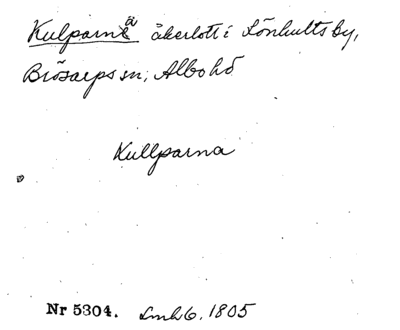 Kulparna åkerlott i Lönhults by,
Brösarps sn, Albo hd
Kullparna
Nr 5304. Lmh 6, 1805